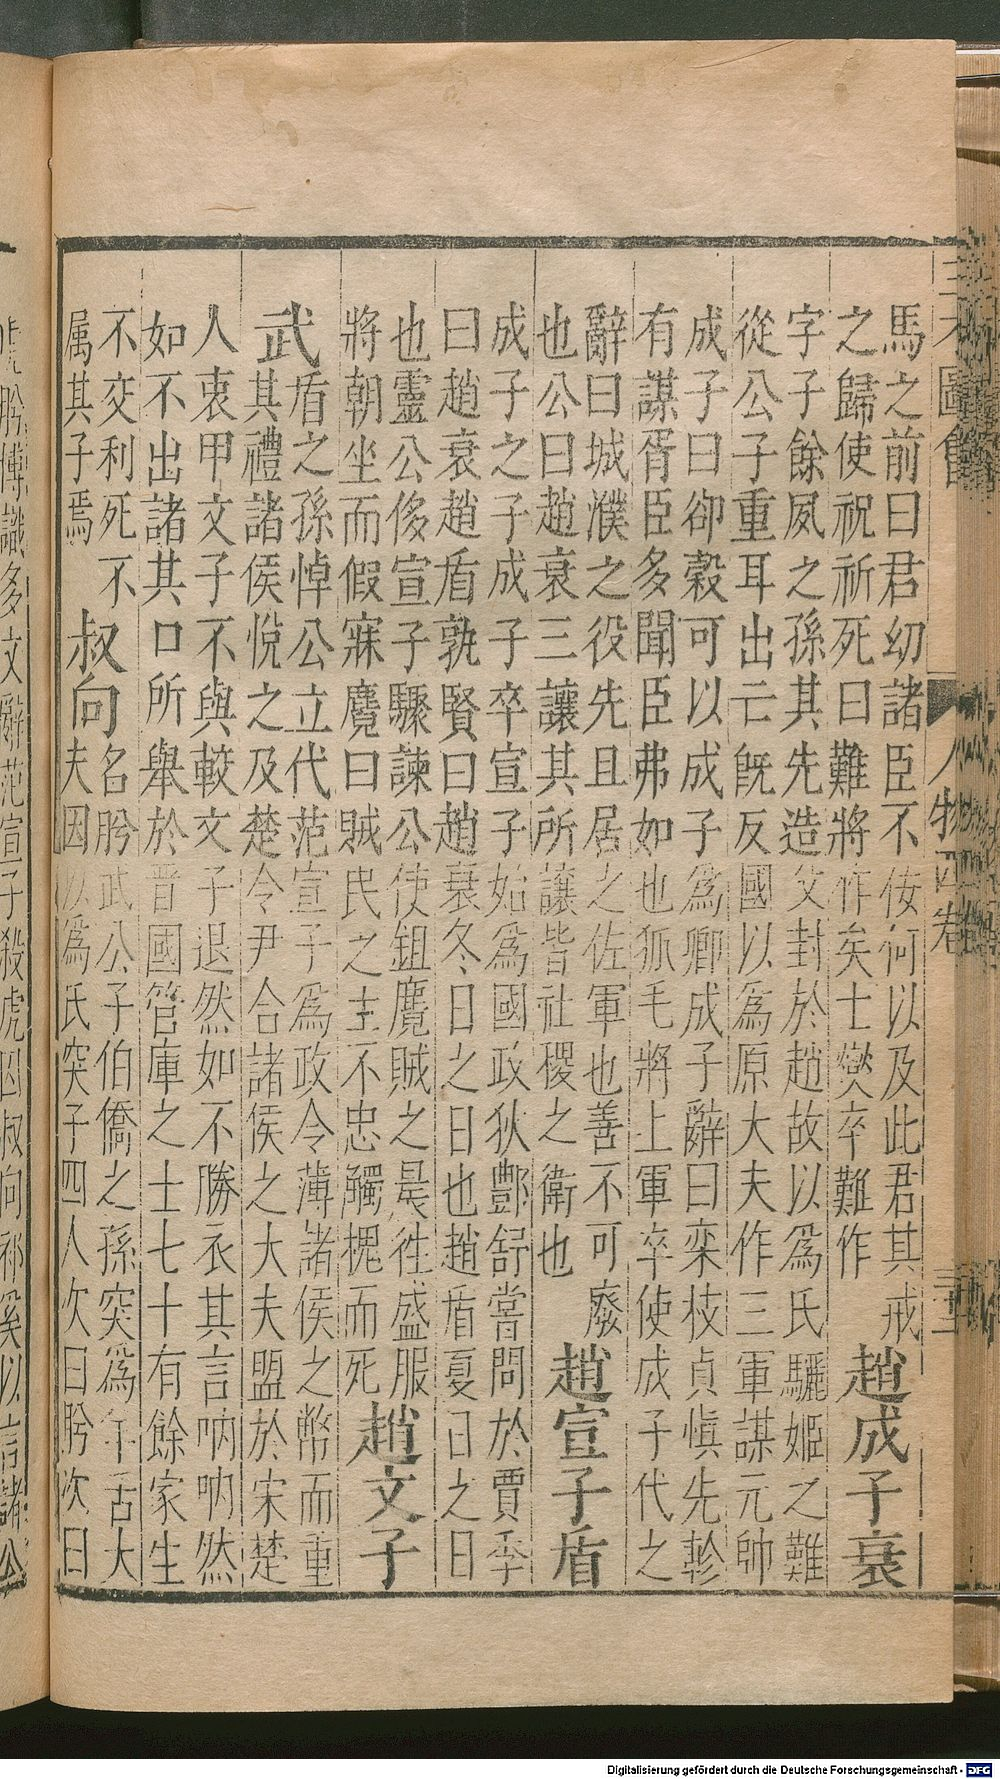 三才圖會
人物四卷
馬之前曰君幼諸臣不侫何以及此君其戒
之歸使祝祈死曰難將作矣士燮卒難作
趙成子衰
字子餘夙之孫其先造父封於趙故以爲氏驪姬之難
從公子重耳出亡既反國以爲原大夫作三軍謀元帥
成子曰卻縠可以成子爲卿成子辭曰栾枝貞愼先軫
有謀胥臣多聞臣弗如也狐毛將上軍卒使成子代之
辭曰城濮之役先且居之佐軍也善不可廢
也公曰趙衰三讓其所讓皆社稷之衛也
趙宣子盾
成子之子成子卒宣子始爲國政狄酆舒嘗問於賈季
曰趙衰趙盾孰賢曰趙衰冬日之日也趙盾夏日之日
也靈公侈宣子驟諫公使鉏麑賊之晨徃盛服
將朝坐而假寐麑曰賊民之主不忠觸槐而死
趙文子
武
盾之孫悼公立代范宣子爲政令薄諸侯之幣而重
其禮諸侯悅之及楚令尹合諸侯之大夫盟於宋楚
人衷甲文子不與較文子退然如不勝衣其言吶吶然
如不出諸其口所舉於晋國管庫之士七十有餘家生
不交利死不
属其子焉
叔向
名肸武公子伯僑之孫突爲羊舌大
夫因以爲氏突子四人次曰肸次曰
肸博識多文辭范宣子殺虎囚叔向祁奚以言諸公
Digitalisierung gefördert durch die Deutsche Forschungsgemeinschaft - DFG